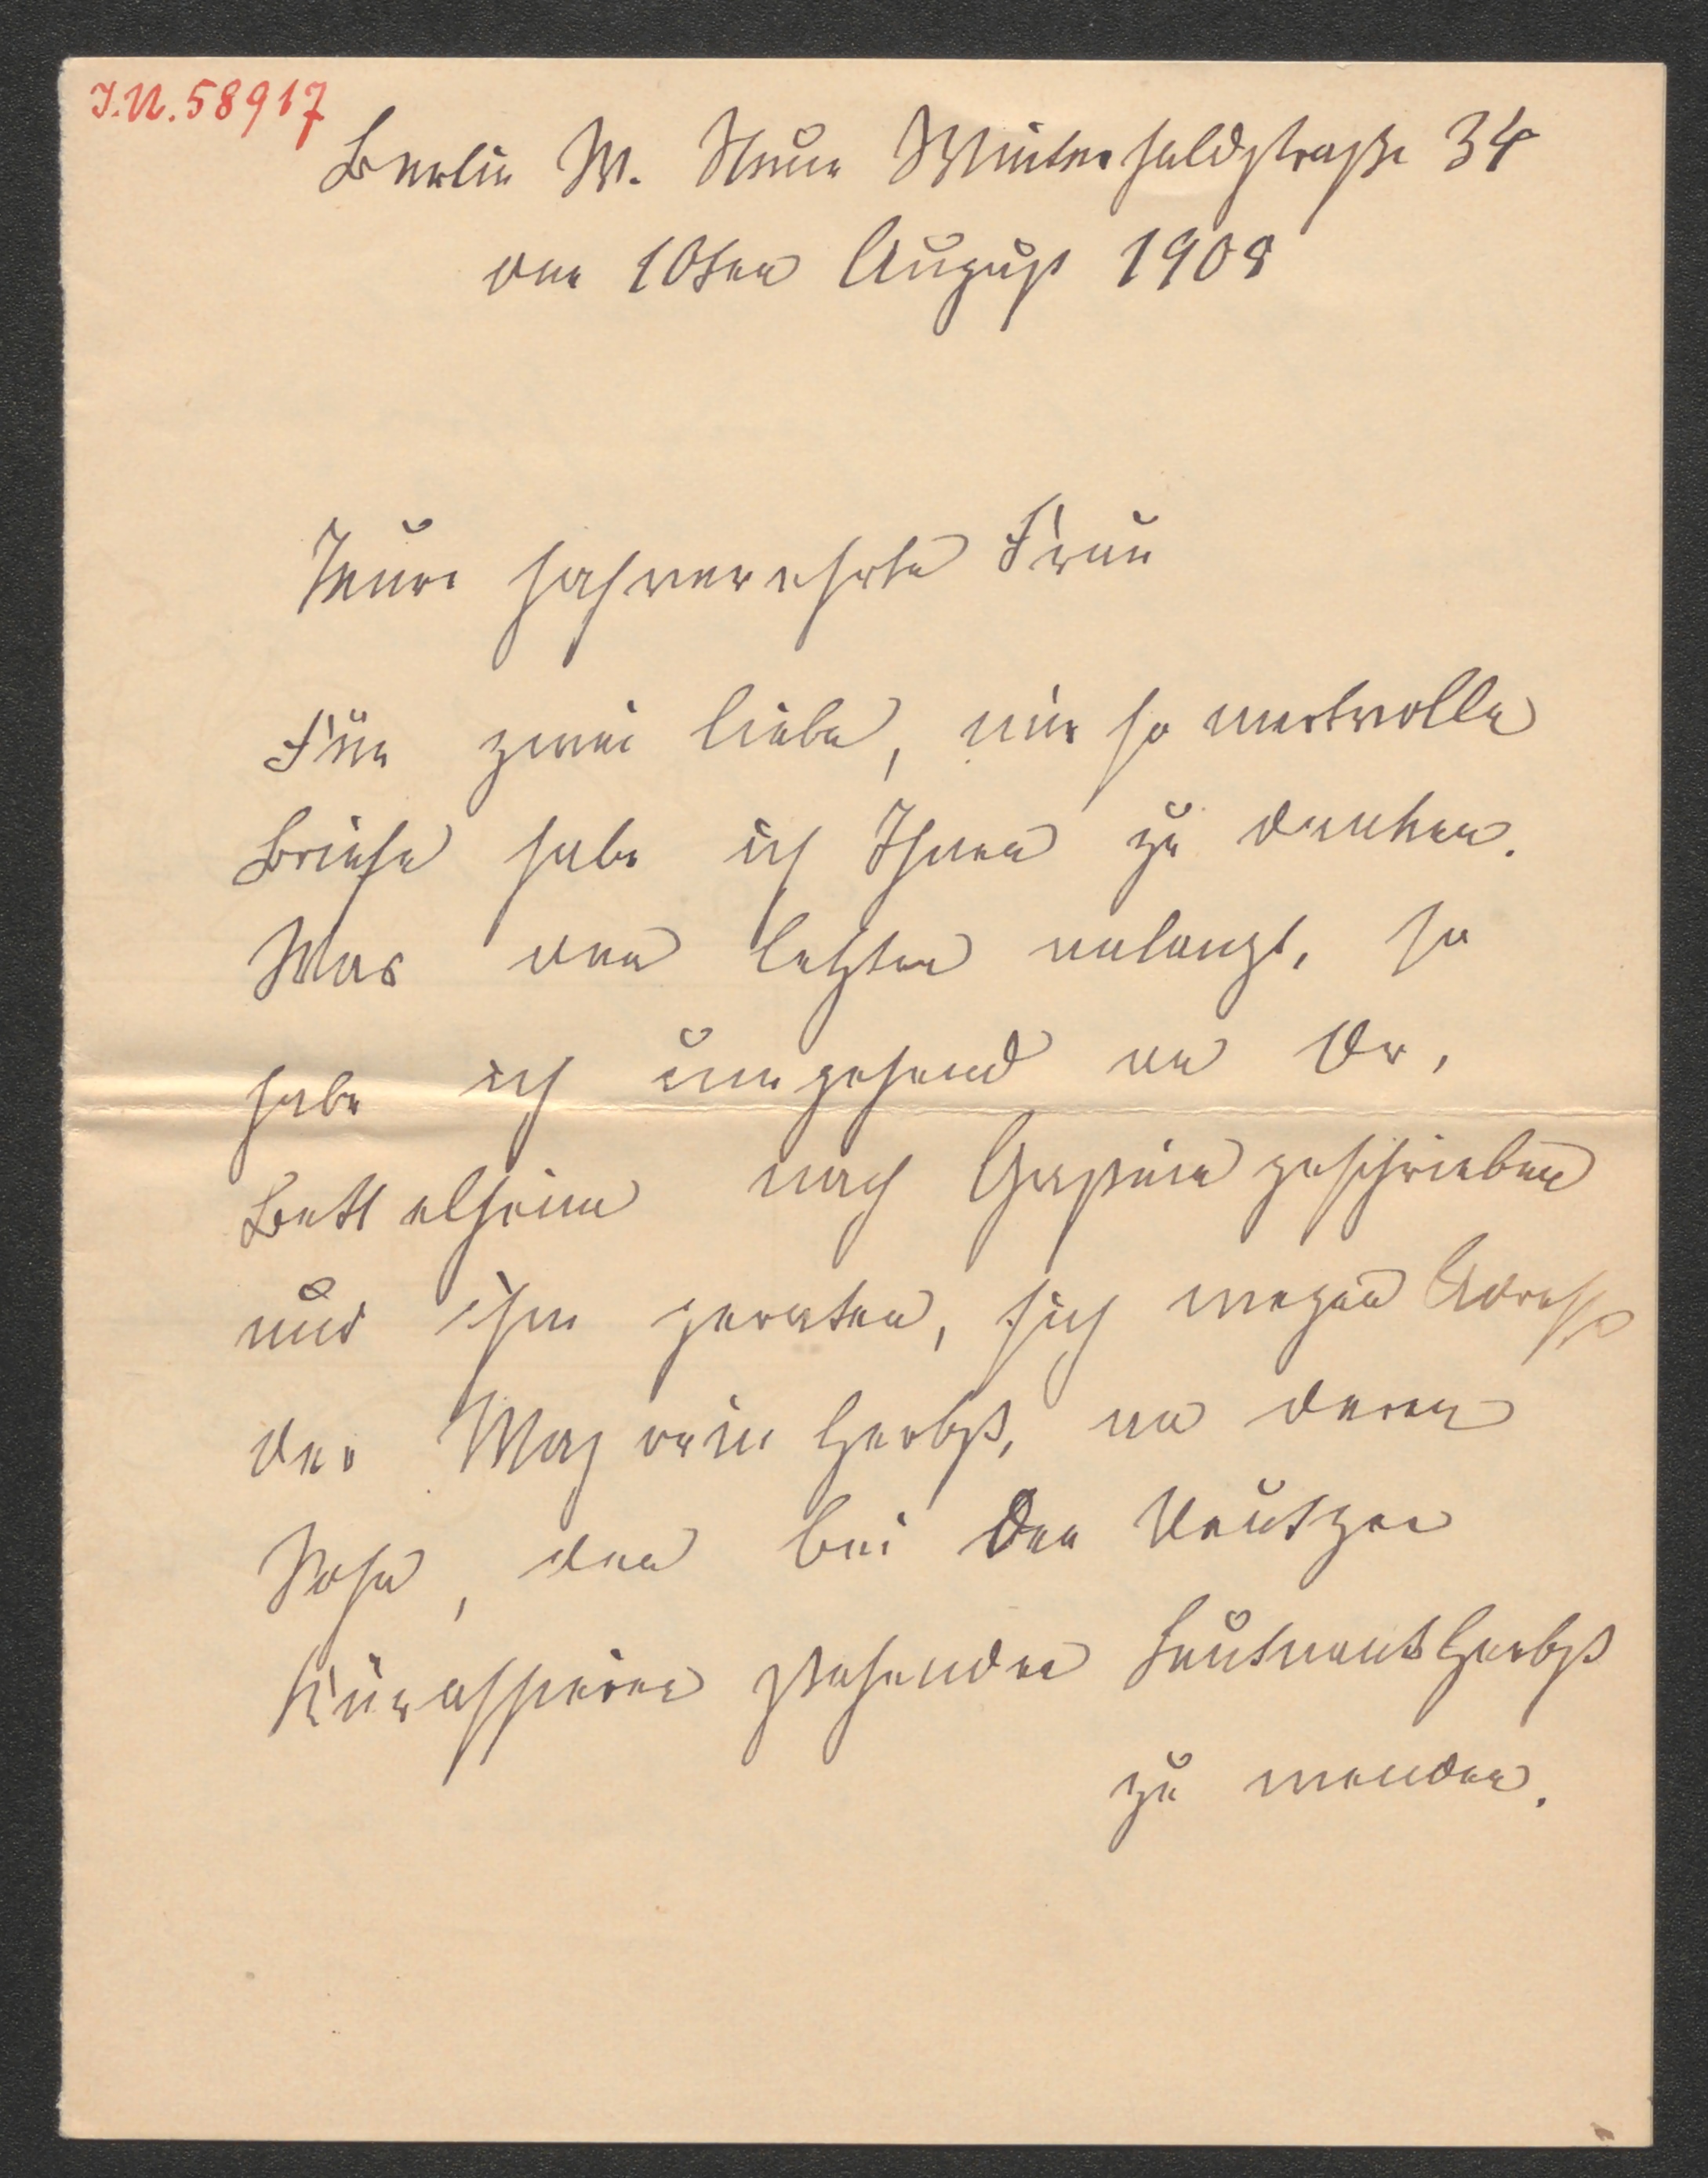 J.N. 58917
Berlin W. Neue Winterfeldstraße 34
den 10ten August 1908
Teure hochverehrte Frau
Für zwei liebe, mir so wertvolle
Briefe habe ich Ihnen zu danken.
Was den letzten anlangt, so
habe ich umgehend an Dr.
Bettelheim nach Gastein geschrieben
und ihm geraten, sich wegen Adresse
der Majorin Herbst, an deren
Sohn, den bei den Deutzer
Kürassieren stehenden Leutnant Herbst
zu wenden.